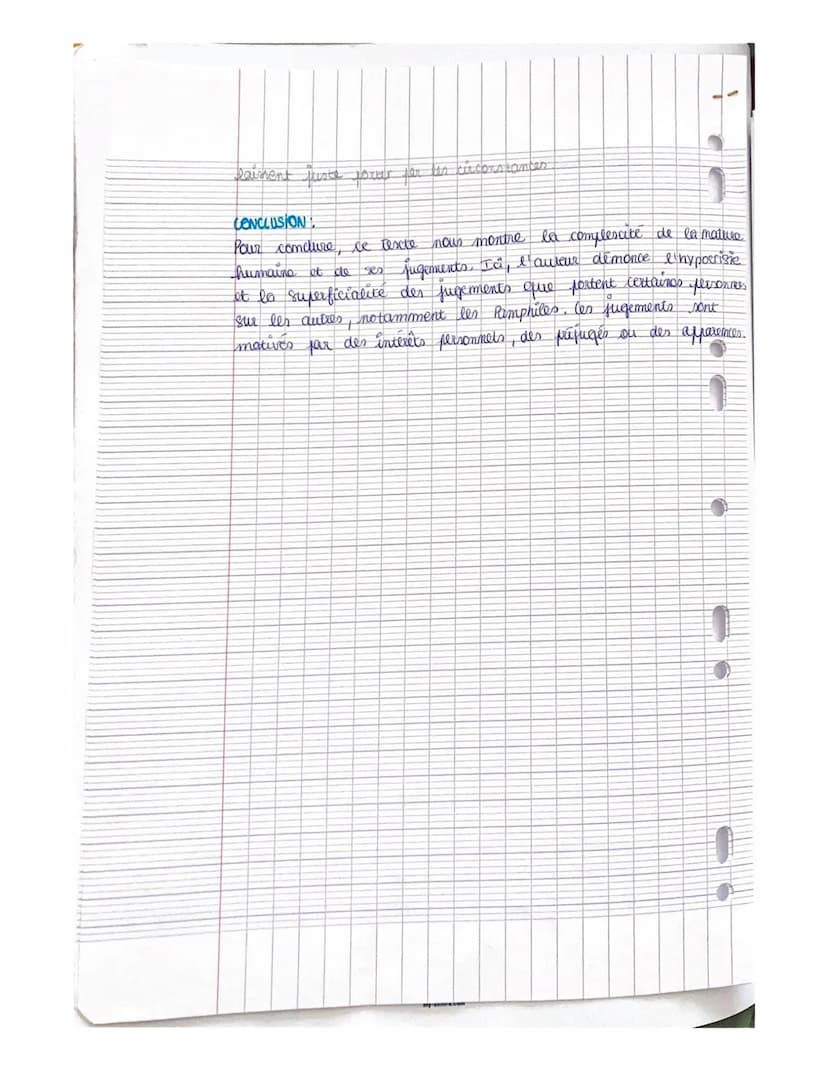 laissent juste porter par les circonstances
CONCLUSION:
Pour conclure, ce texte nous montre la complexcité de la nature
humaine et de ses jugements. Ici, l'auteur dénonce l'hypocrisie
et la superficialité des jugements que portent certaines personnes
sur les autres, notamment les Pamphiles. Ces jugements sont
motivés par des intérêts personnels, des préjugés ou des apparences.